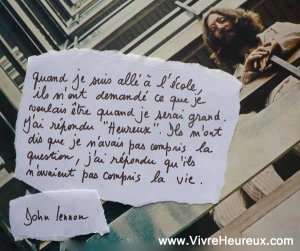 quand je suis allé à l'école,
ils m'ont demandé ce que je
voulais être quand je serai grand.
J'ai répondu "Heureux". Ils m'ont
dis que je n'avais pas compris la
question, j'ai répondu qu'ils
n'avaient pas compris la vie.
John Lennon
www.VivreHeureux.com